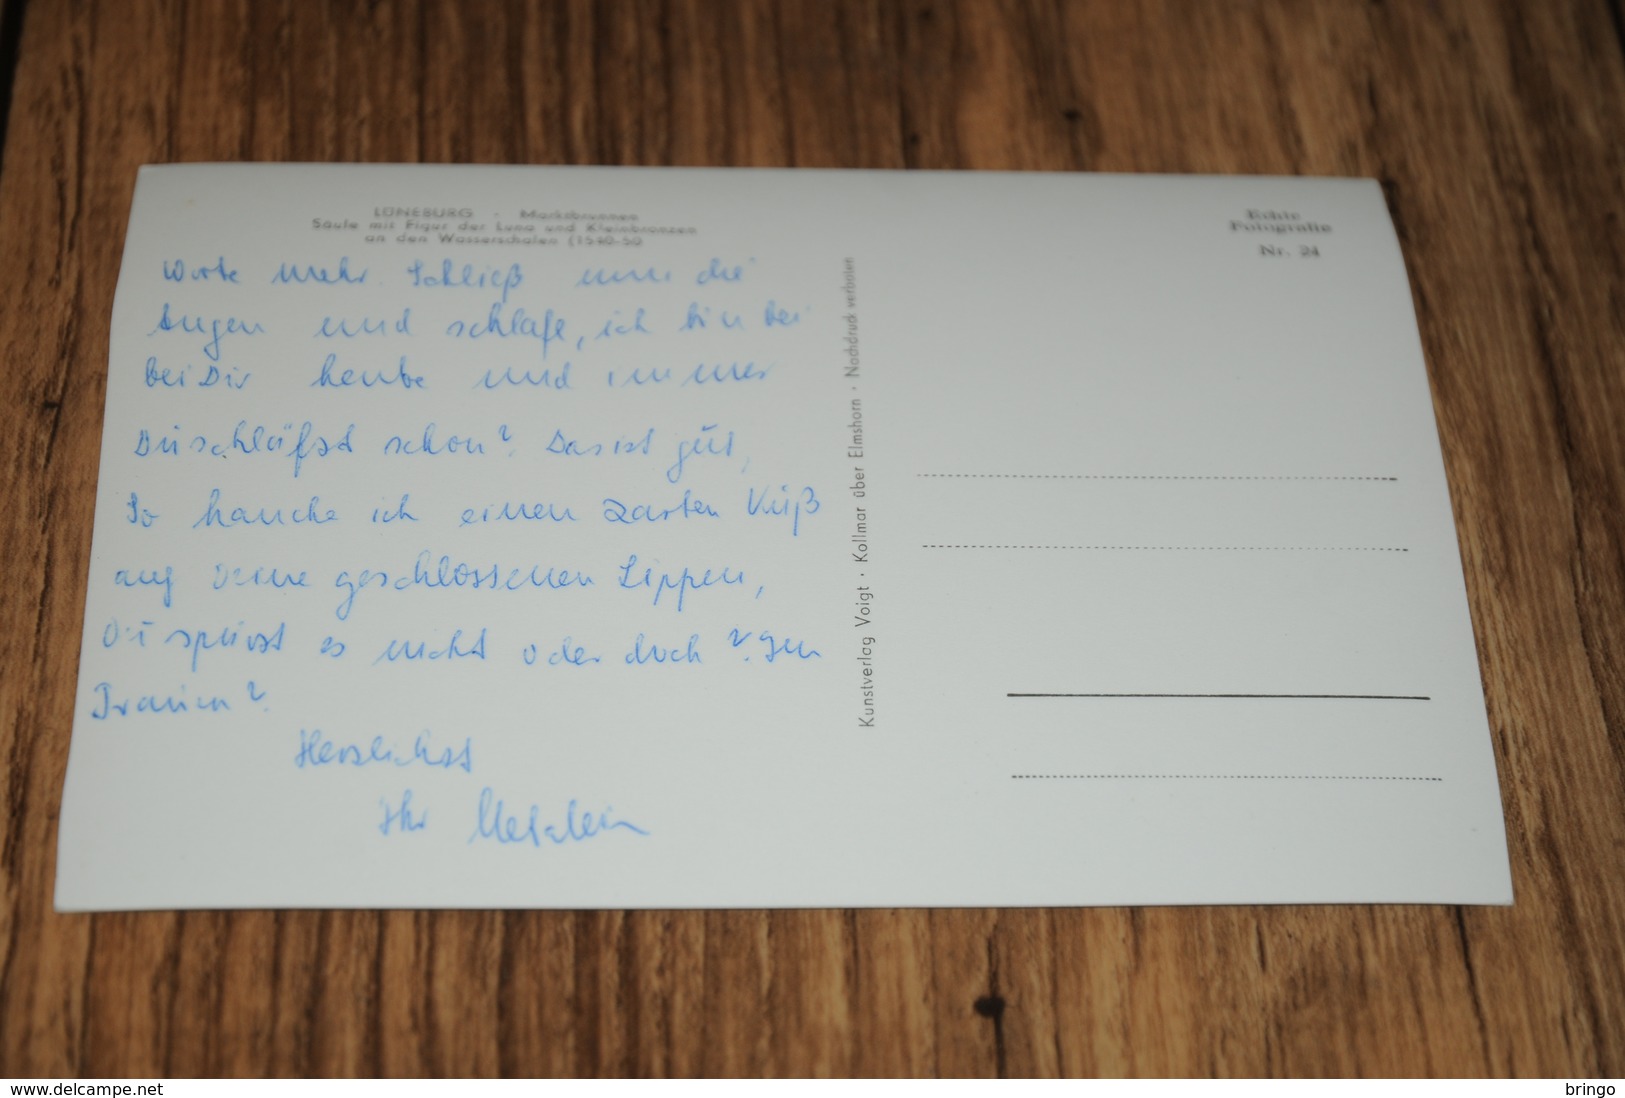 LÜNEBURG - Marktbrunnen
Säule mit Figur der Luna und Kleinbronzen
an den Wasserschalen (1540-50
Echte
Fotografie
Nr. 24
Worte mehr. Schließ nun die
Augen und schlafe, ich bin bei
bei Dir heute und immer
Du schläfst schon? Das ist gut,
So hauche ich einen zarten Kuß
auf Deine geschlossenen Lippen,
Du spürst es nicht oder doch? Im
Traum?
Herzlichst
Ihr
Kunstverlag Voigt · Kollmar über Elmshorn · Nachdruck verboten
www.delcampe.net
bringo